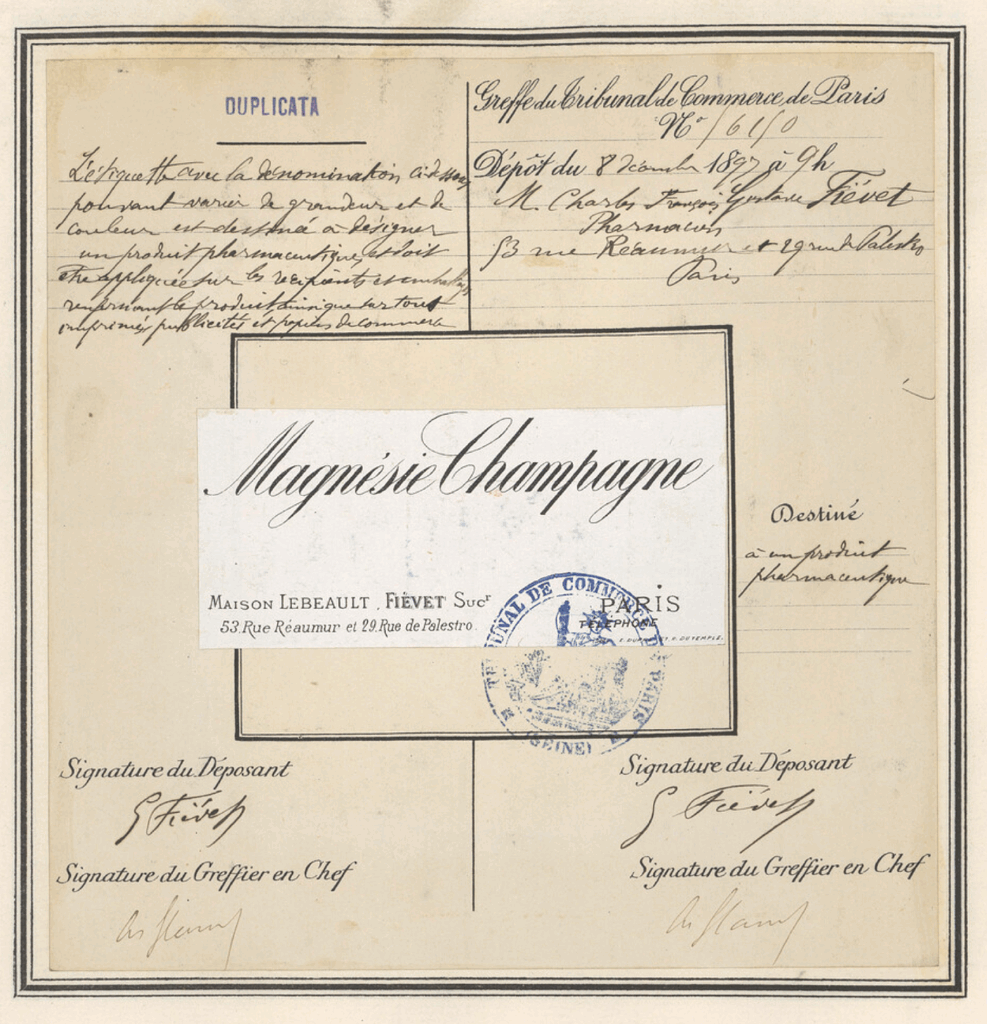 DUPLICATA
L'étiquette avec la dénomination ci-dessous
pouvant varier de grandeur et de
couleur est destinée à désigner
un produit pharmaceutique et doit
être appliquée sur les récipients et emballages
renfermant le produit, ainsi que sur tous
imprimés, publicités et papiers de commerce
Greffe du Tribunal de Commerce de Paris
N° 61610
Dépôt du 8 décembre 1897 à 9h
M. Charles François Gustave Fiévet
Pharmacien
53 rue Réaumur et 29 rue de Palestro
Paris
Magnésie Champagne
MAISON LEBEAULT, FIÉVET SUCr PARIS
53.Rue Réaumur et 29.Rue de Palestro. TÉLÉPHONE
TRIBUNAL DE COMMERCE DE PARIS
(SEINE)
Destiné
à un produit
pharmaceutique
Signature du Déposant
G Fiévet
Signature du Greffier en Chef
Signature du Déposant
G Fiévet
Signature du Greffier en Chef